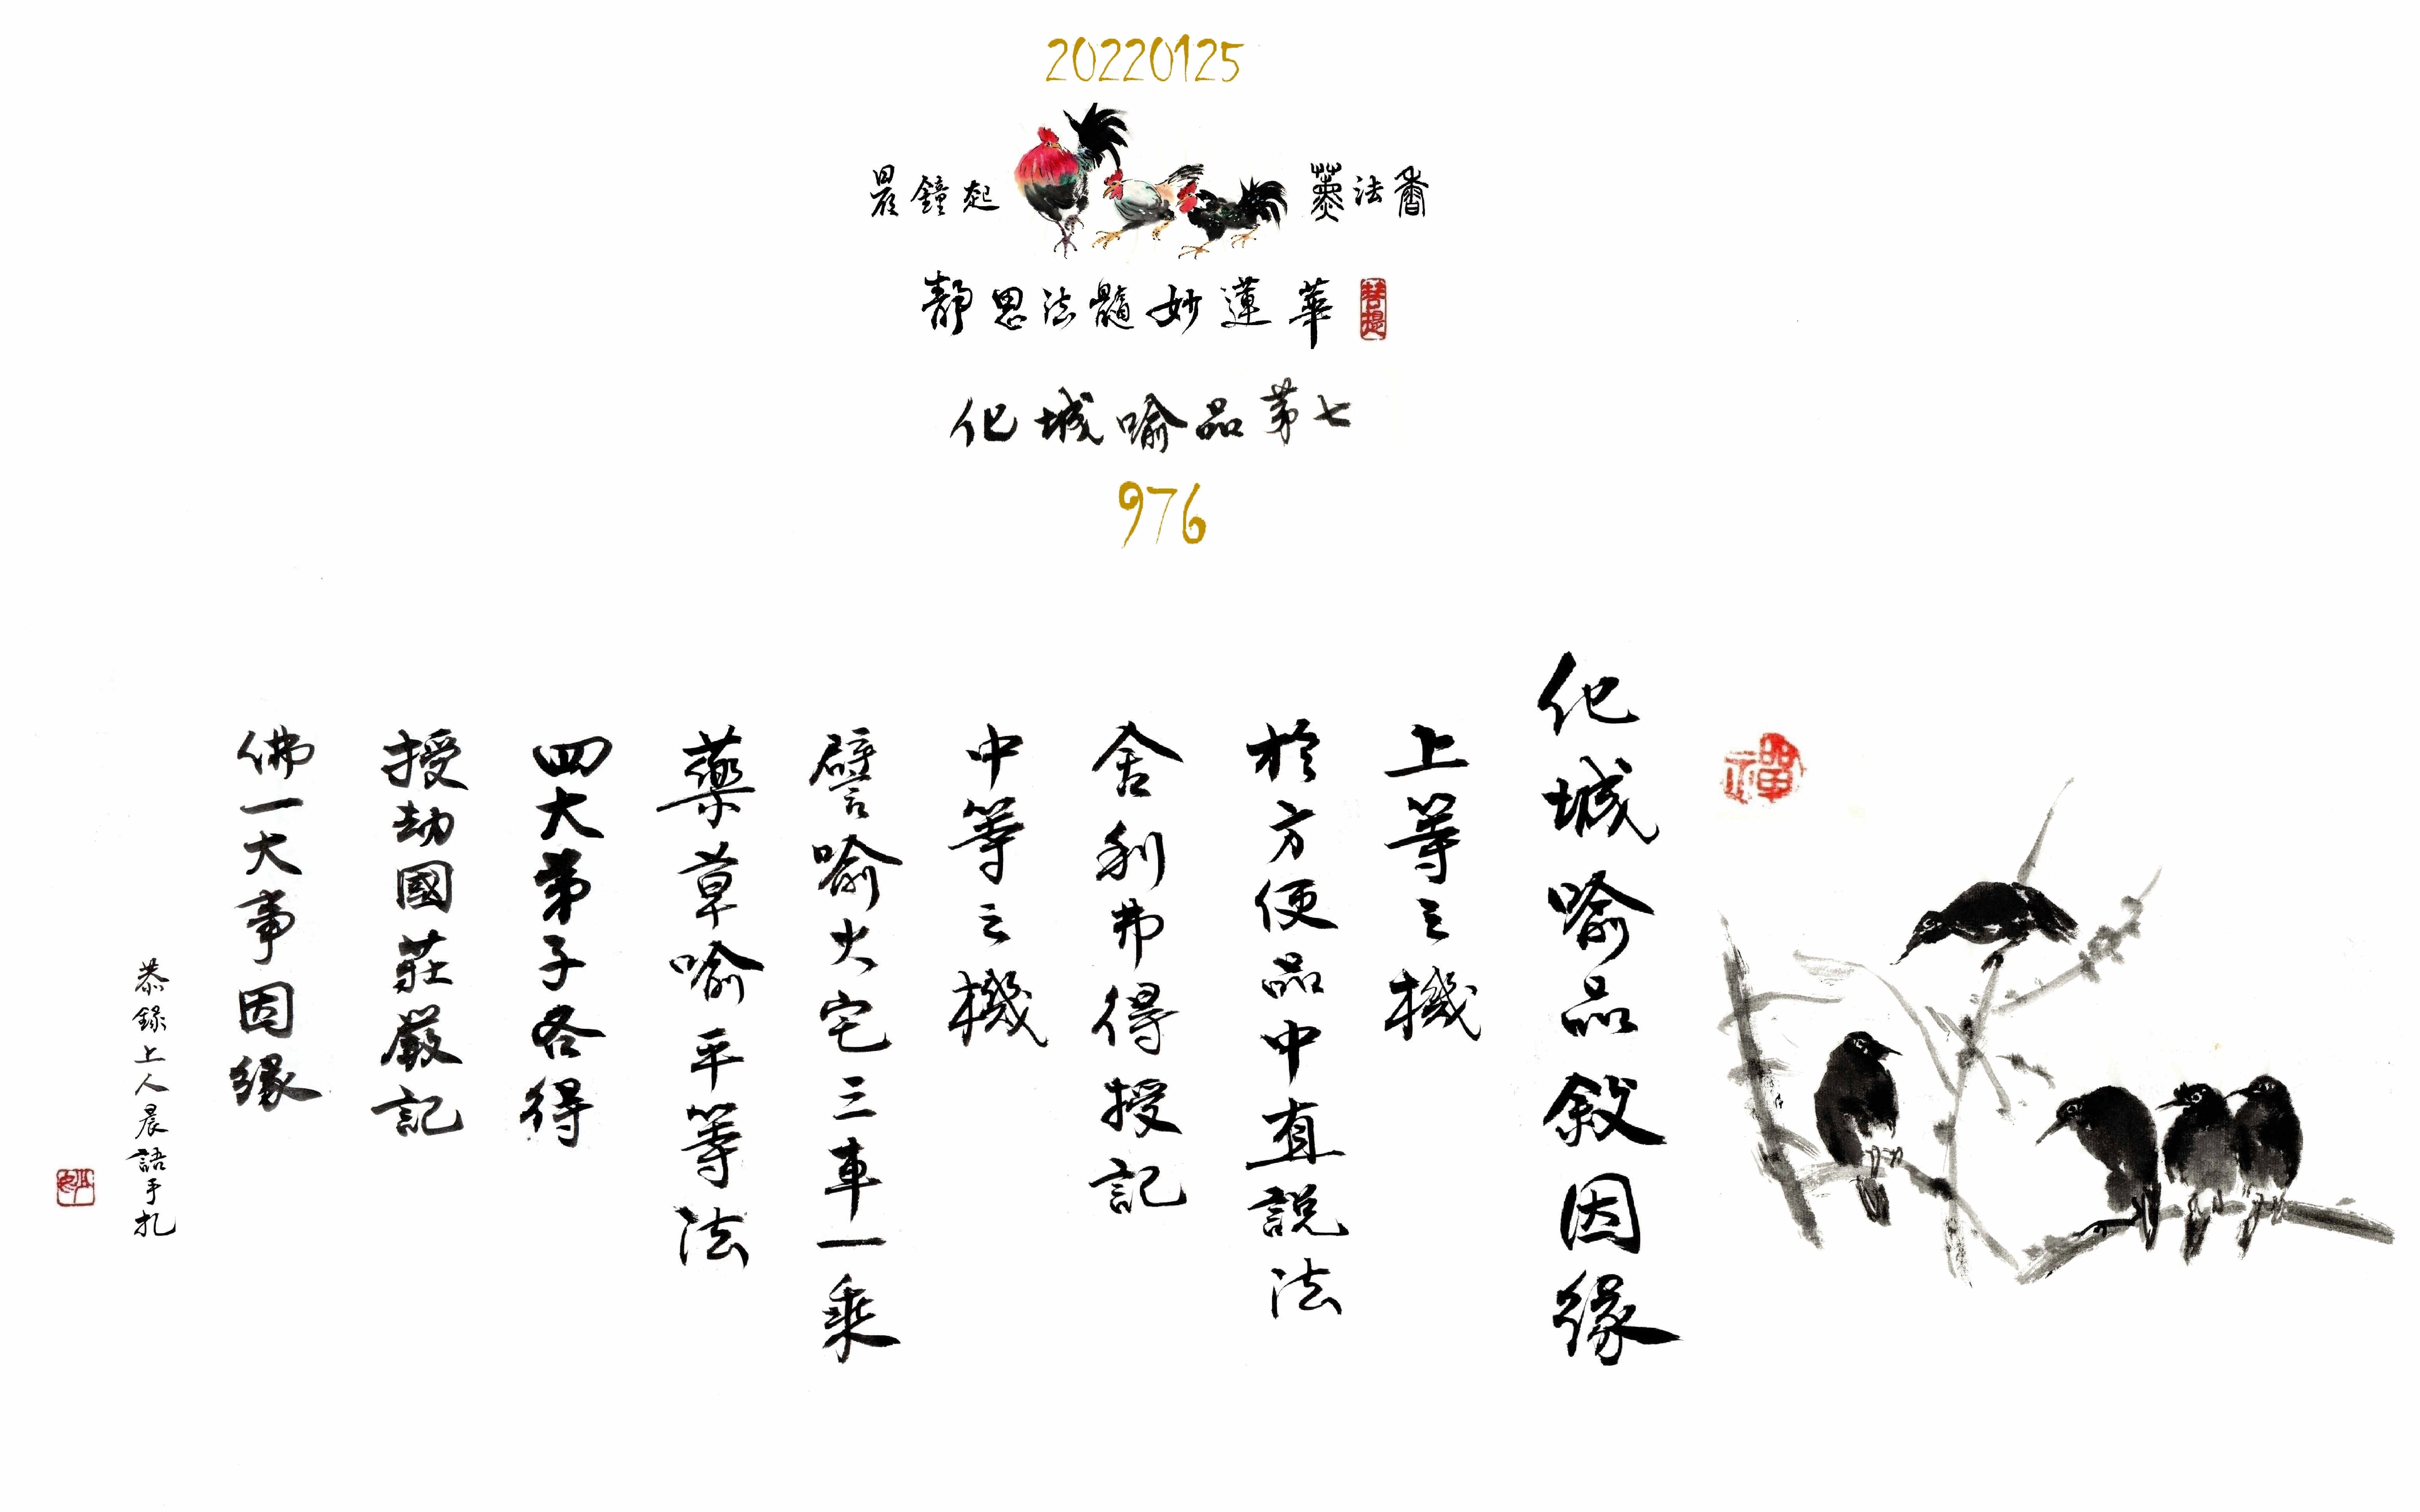 20220125
晨鐘起 薰法香
靜思法髓妙蓮華 菩提
化城喻品第七
976
禪
化城喻品敘因緣
上等之機
於方便品中直說法
舍利弗得授記
中等之機
譬喻火宅三車一乘
藥草喻平等法
四大弟子各得
授劫國莊嚴記
佛一大事因緣
恭錄上人晨語手札